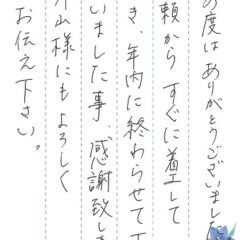 の度は ありがとうございました
頼から すぐに着工して
き、年内に終わらせて下
いました事、感謝致しま
山様にもよろしく
お伝え下さい。